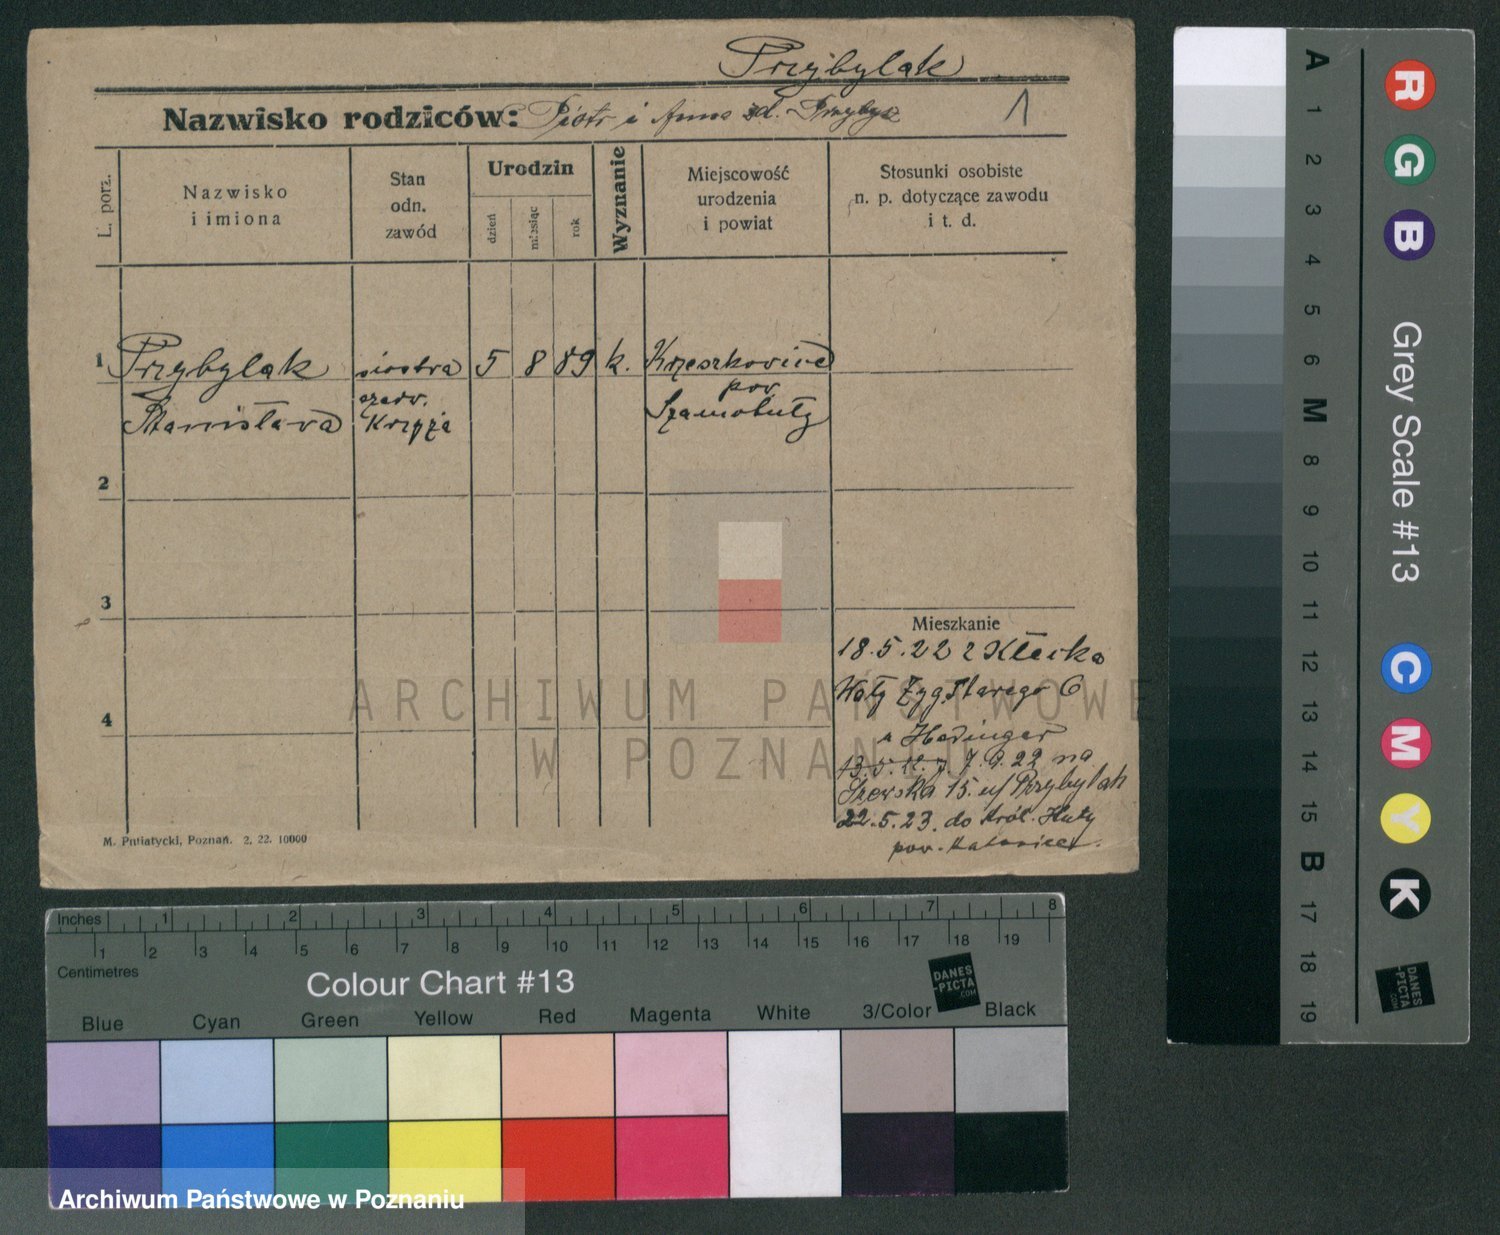 Przybylak
Nazwisko rodziców: Piotr i Anna zd. Przybysz 1
L. porz.
Nazwisko
i imiona
Stan
odn.
zawód
Urodzin
dzień
miesiąc
rok
Wyznanie
Miejscowość
urodzenia
i powiat
Stosunki osobiste
n. p. dotyczące zawodu
i t. d.
1 Przybylak siostra 5 8 89 k.
Stanisława czerw. Krzyża
pow.
Szamotuły
2
3
4
Mieszkanie
18.5.22 z Kłecka
Zyg. Starego 6
7.9.22 na
Szewska 15. u/ Przybylak
22.5.23. do Król. Huty
pow. Katowice.
M. Putiatycki, Poznań. 2. 22. 10000
ARCHIWUM PAŃSTWOWE
W POZNANIU
Inches 1 2 3 4 5 6 7 8
1 2 3 4 5 6 7 8 9 10 11 12 13 14 15 16 17 18 19
Centimetres
Colour Chart #13
DANES
-PICTA
.COM
Blue Cyan Green Yellow Red Magenta White 3/Color Black
Archiwum Państwowe w Poznaniu
A 1 2 3 4 5 6 M 8 9 10 11 12 13 14 15 B 17 18 19
R G B Grey Scale #13 C M Y K
DANES
-PICTA
.COM